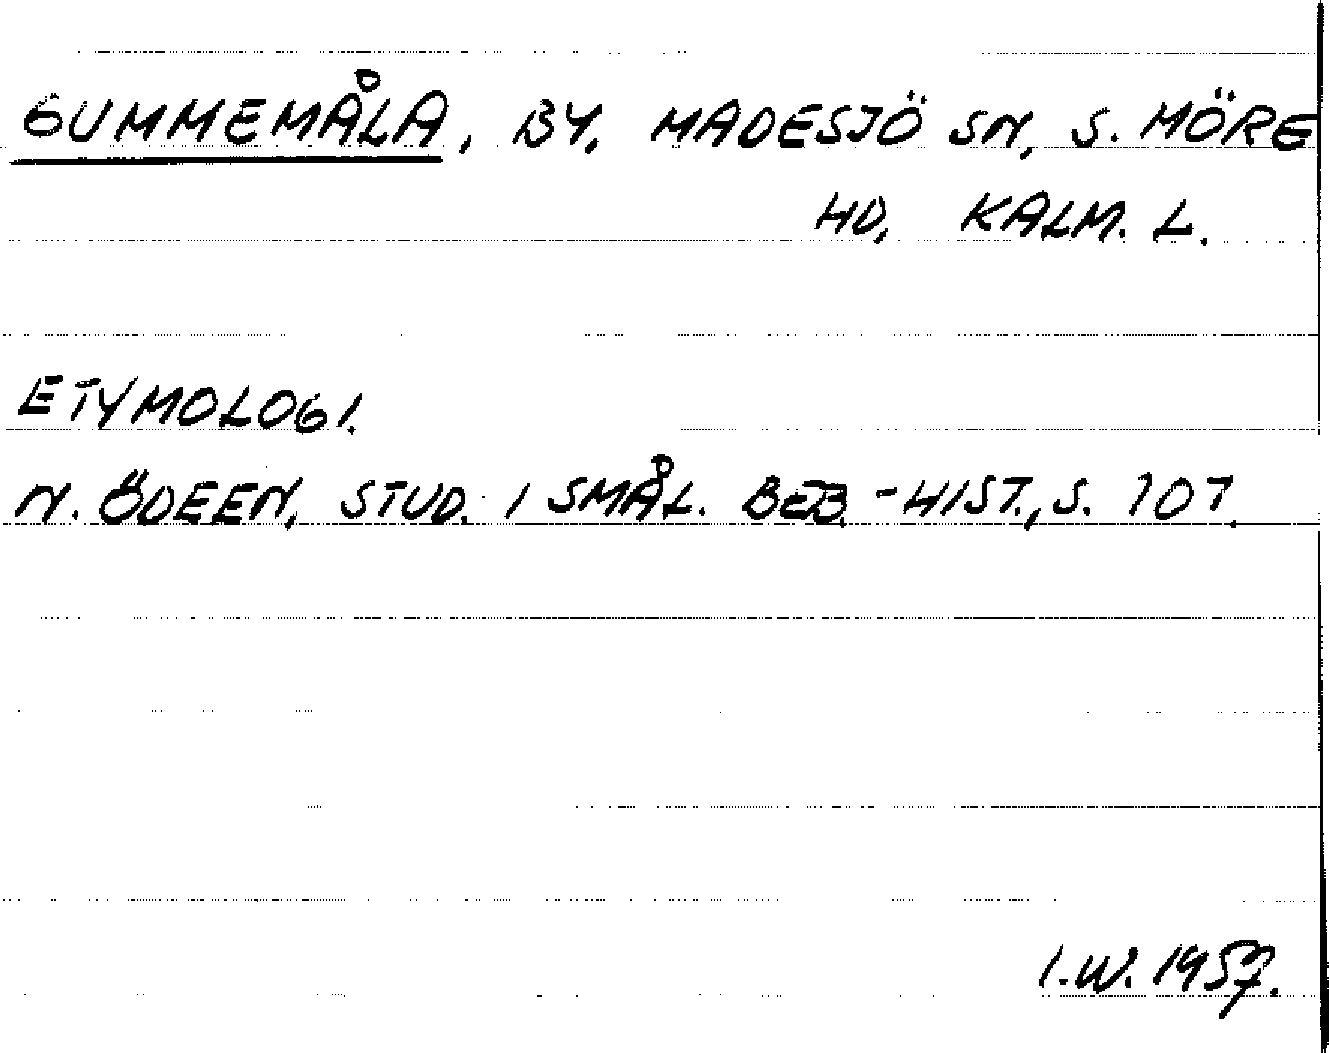 GUMMEMÅLA, BY, MADESJÖ SN, S. MÖRE
HD, KALM. L.
ETYMOLOGI.
N. ÖDEEN, STUD. I SMÅL. BEB.-HIST., S. 107.
I.W. 1957.